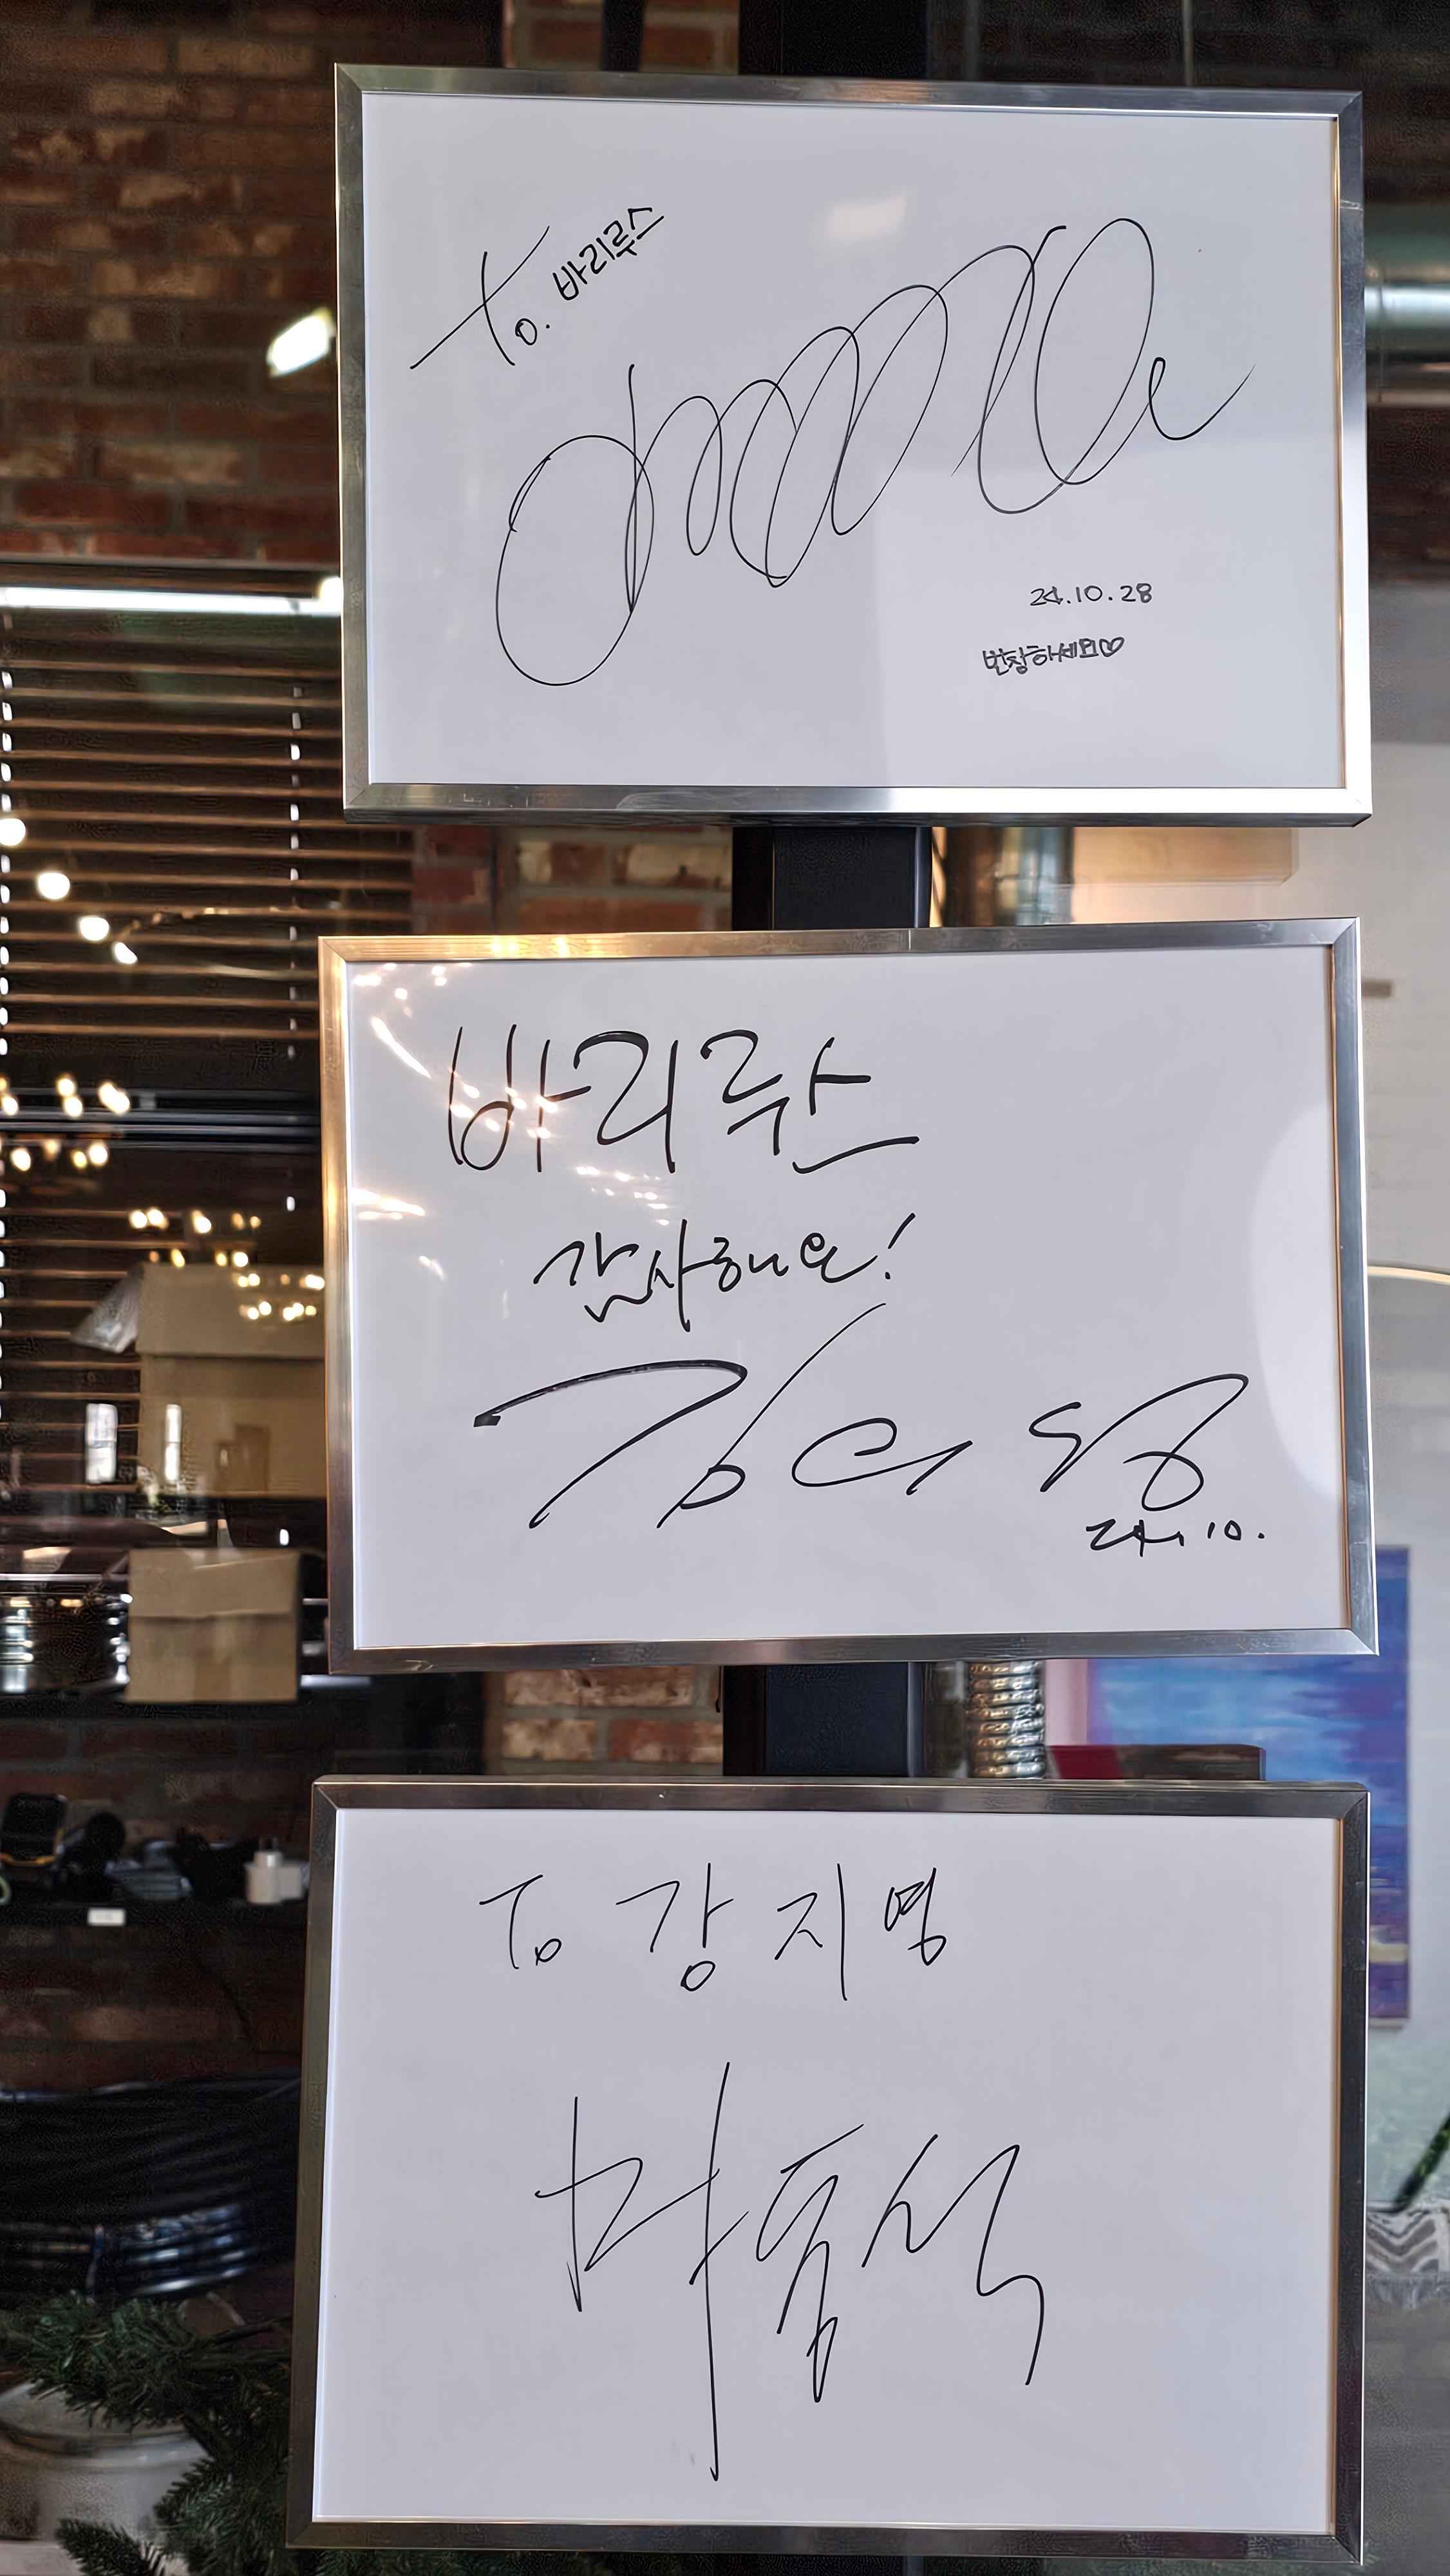 To. 바리루스
24.10.28
번창하세요♡
바리루스
감사해요!
24.10.
To 강지명